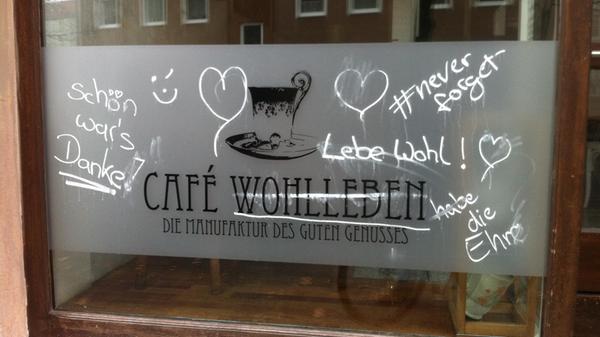 Schön
war's
Danke!
#never
forget
Lebe Wohl!
CAFÉ WOHLLEBEN
DIE MANUFAKTUR DES GUTEN GENUSSES
habe
die
Ehre